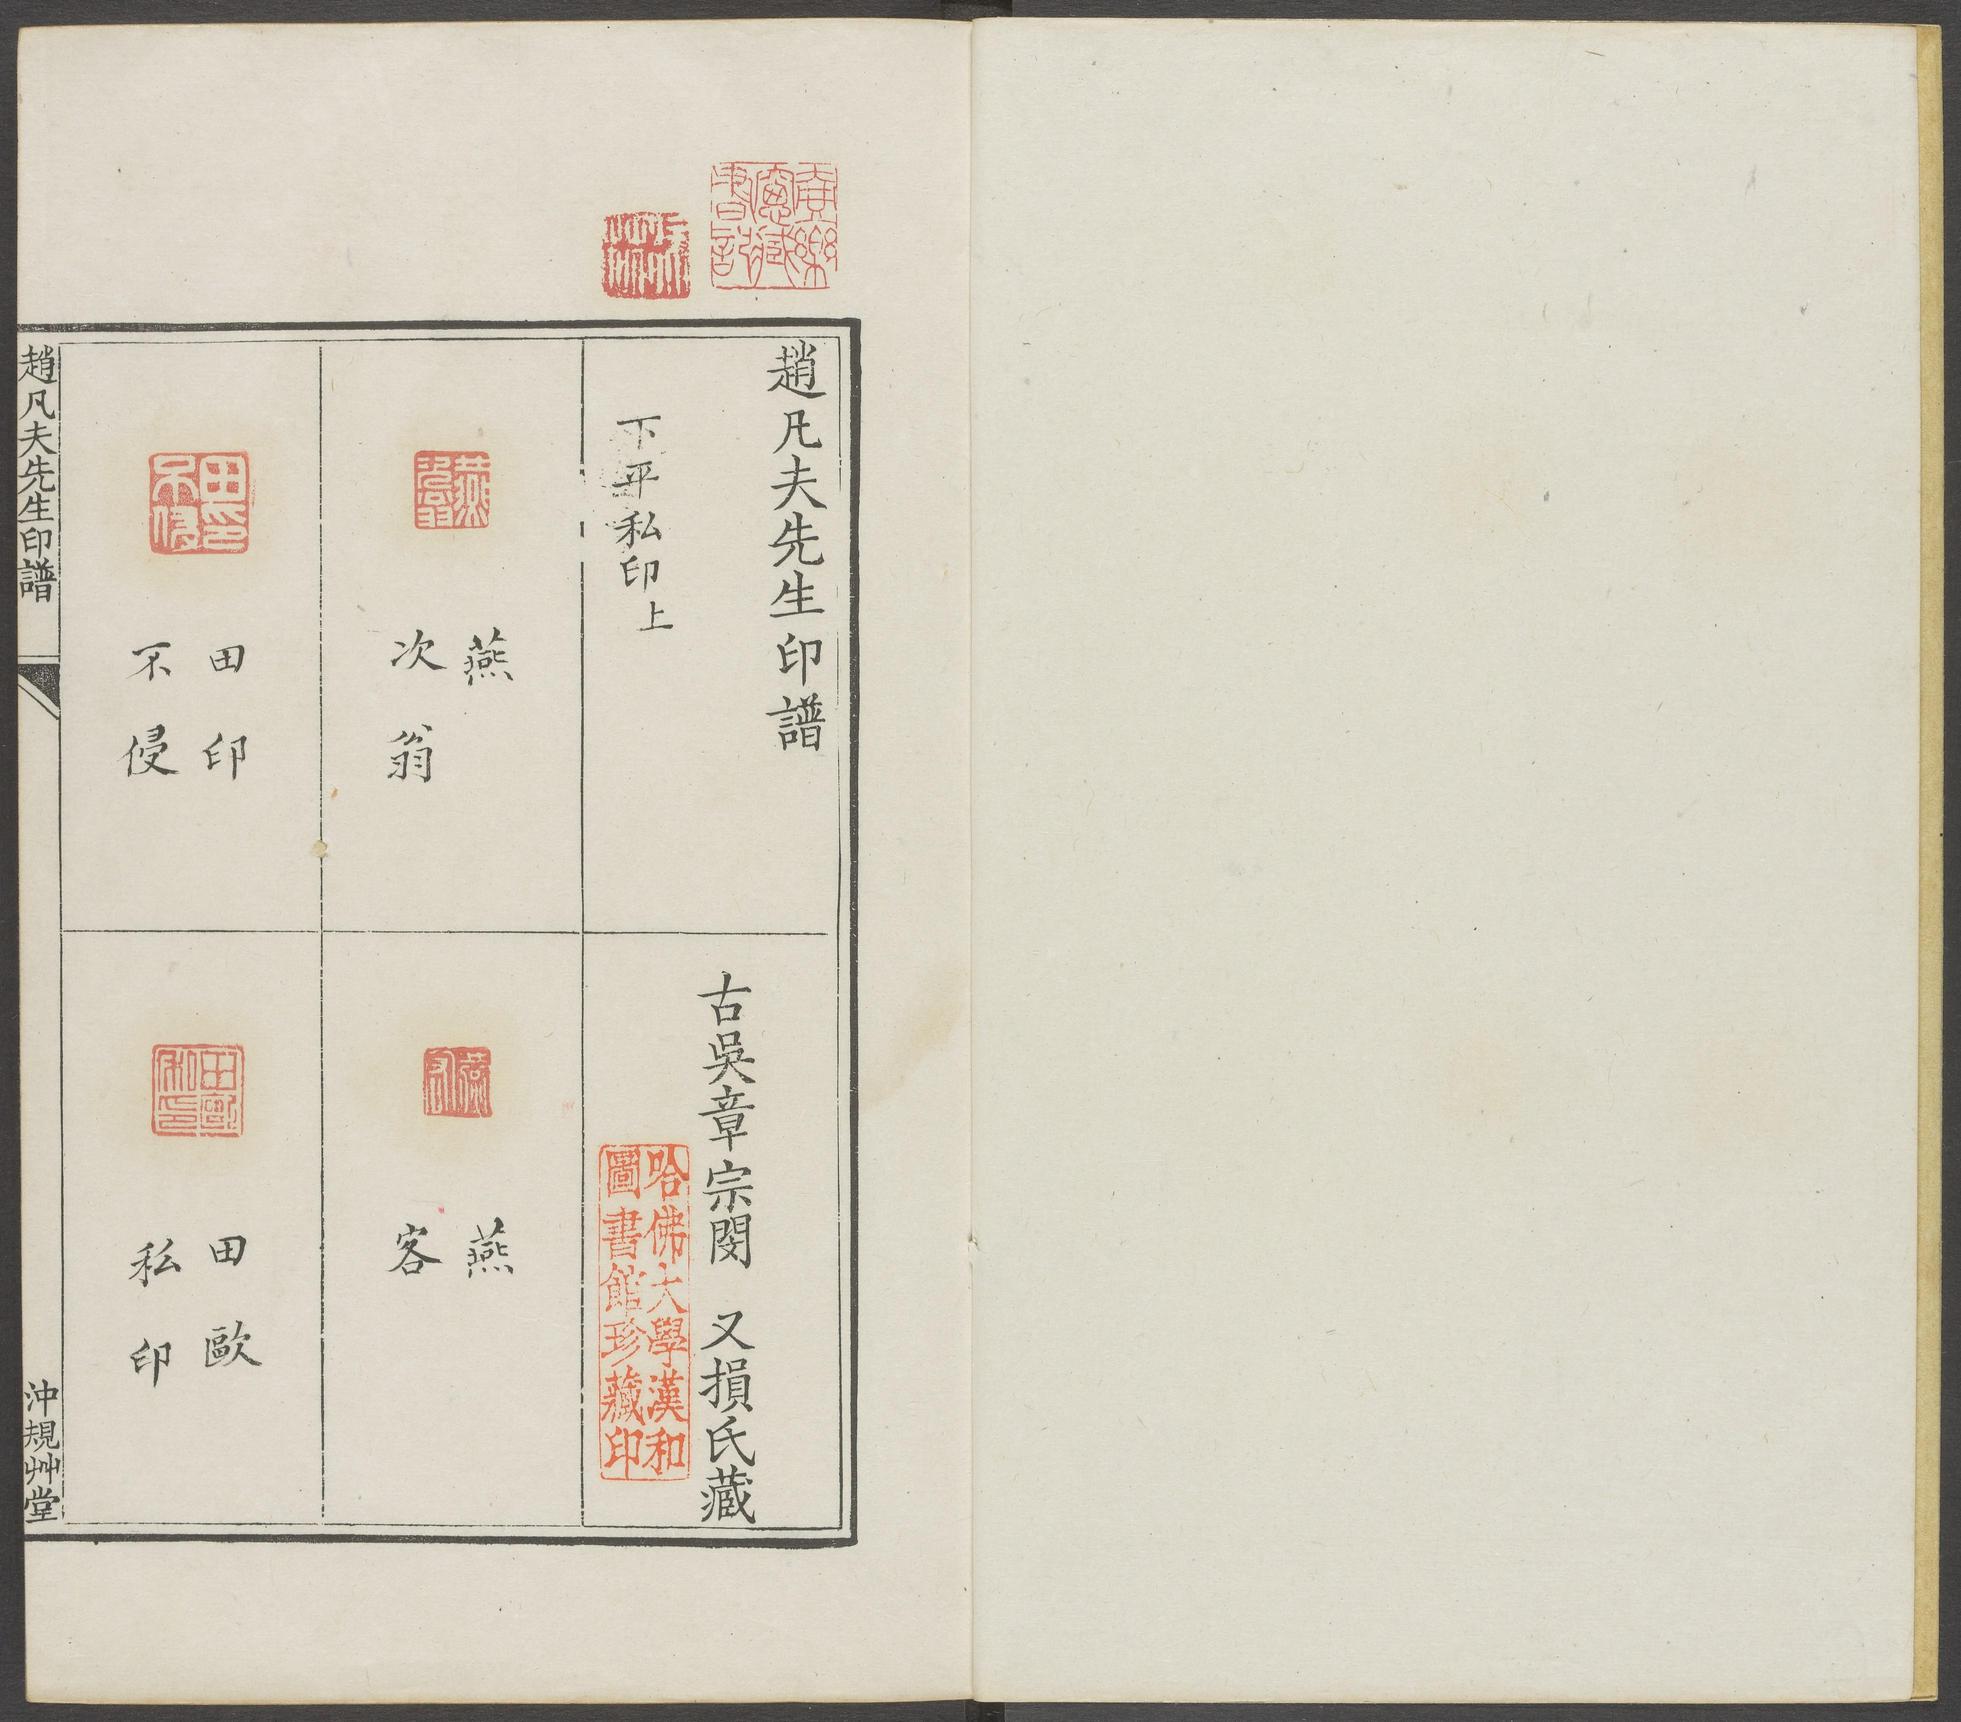 趙凡夫先生印譜
古吳章宗閔 又損氏藏
下平私印上
哈佛大學漢和
圖書館珍藏印
燕
次翁
燕
客
田印
不侵
田歐
私印
趙凡夫先生印譜
沖規艸堂